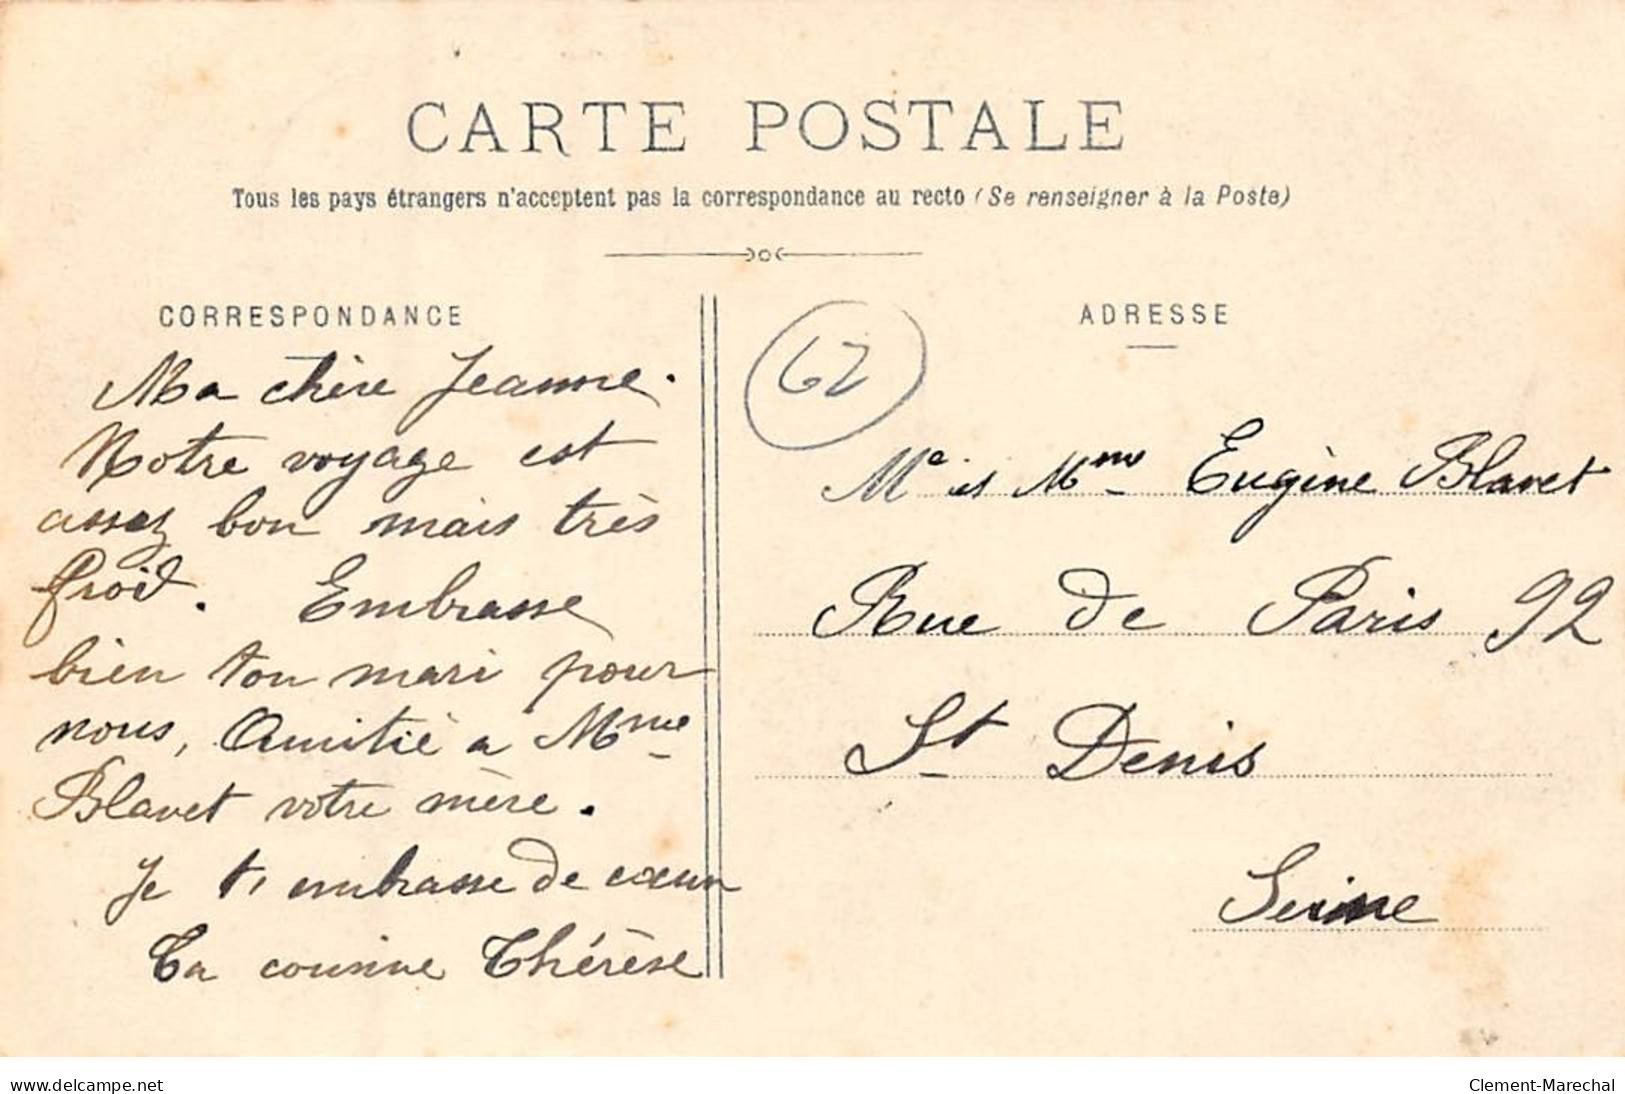 CARTE POSTALE
Tous les pays étrangers n'acceptent pas la correspondance au recto (Se renseigner à la Poste)
CORRESPONDANCE
Ma chère Jeanne.
Notre voyage est
assez bon mais très
froid. Embrasse
bien ton mari pour
nous, Amitié a Mme
Blavet votre mère.
Je t'embrasse de cœur
Ta cousine Thérèse
ADRESSE
62
Mr et Mme Eugène Blavet
Rue de Paris 92
St Denis
Seine
delcampe.net
Clement-Marechal